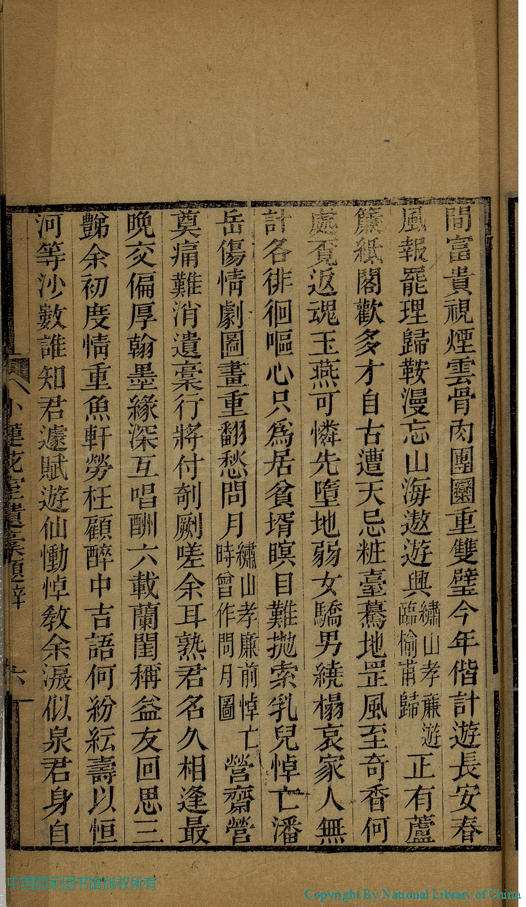 間富貴視煙雲骨肉團圞重雙璧今年偕計遊長安春
風報罷理歸鞍漫忘山海遨遊興繡山孝廉遊臨榆甫歸正有蘆
簾紙閣歡多才自古遭天忌粧臺驀地罡風至奇香何
處覓返魂玉燕可憐先墮地弱女驕男繞榻哀家人無
計各徘徊嘔心只爲居貧壻瞑目難拋索乳兒悼亡潘
岳傷情劇圖畫重翻愁問月繡山孝廉前悼亡時曾作問月圖營齋營
奠痛難消遺稾行將付剞劂嗟余耳熟君名久相逢最
晚交偏厚翰墨緣深互唱酬六載蘭閨稱益友回思三
　余初度情重魚軒勞枉顧醉中吉語何紛紜壽以恒
河等沙數誰知君遽賦遊仙慟悼教余淚似泉君身自
小蓮花室遺稾題辭　六
中国国家图书馆版权所有
Copyright By National Library of China